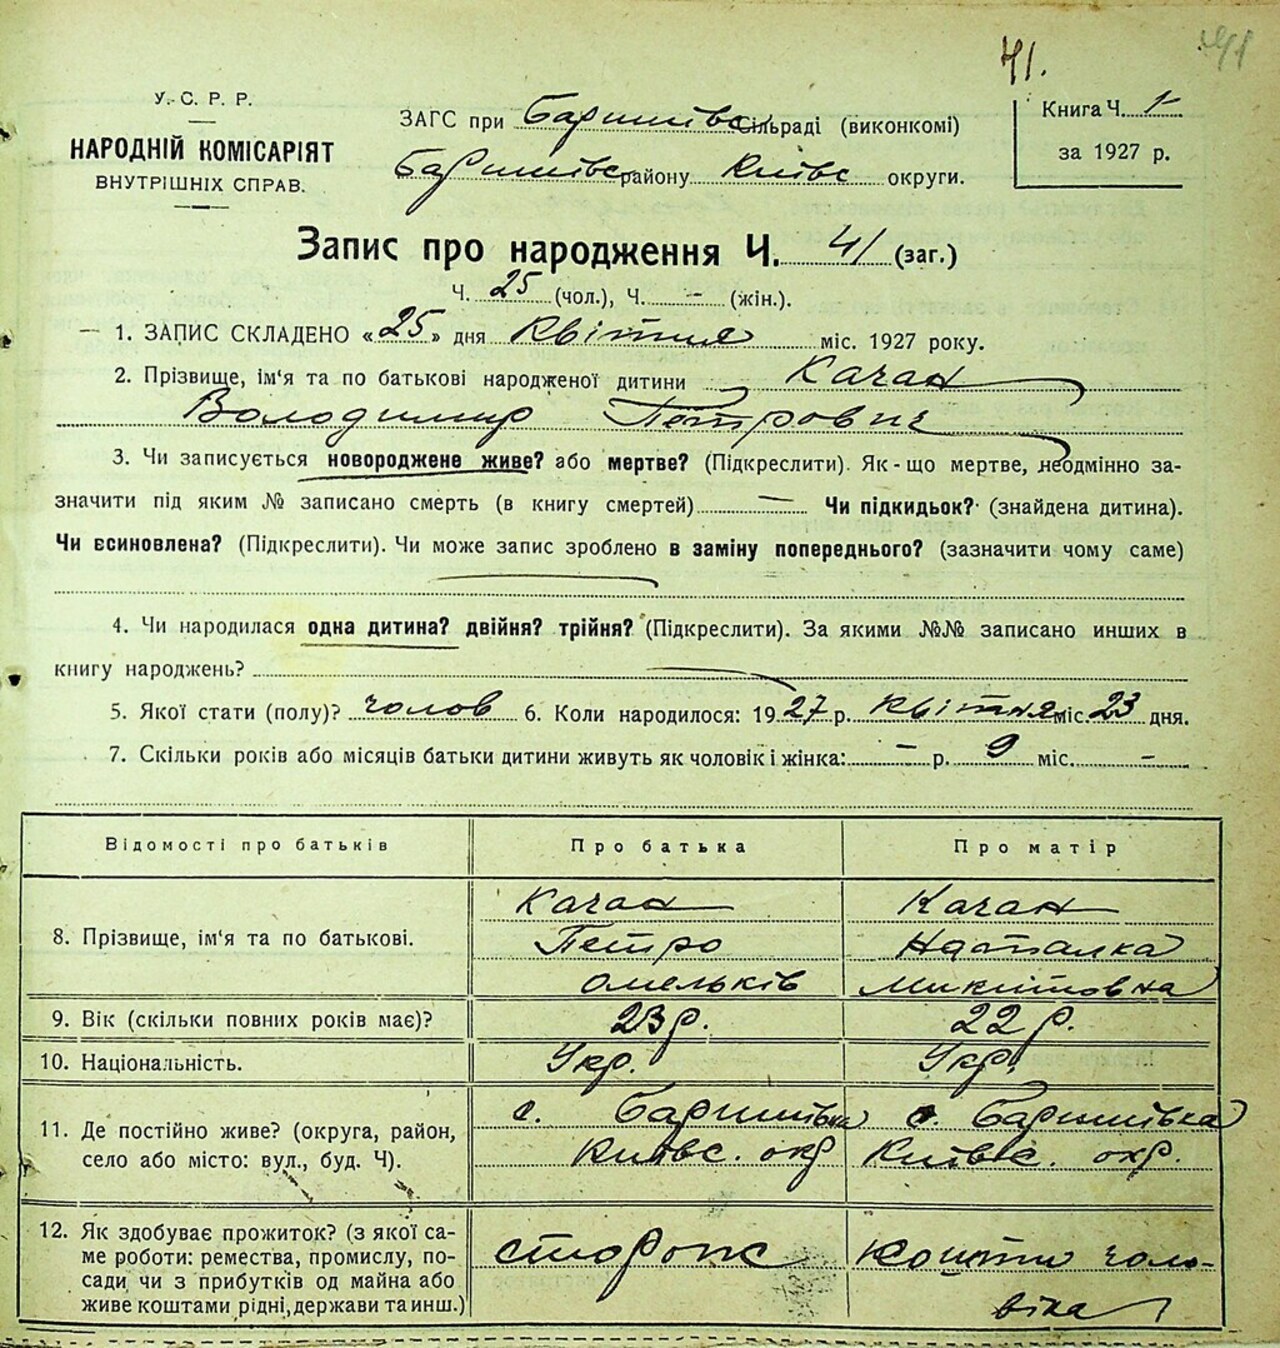 41. 41
У. С. Р. Р.
НАРОДНІЙ КОМІСАРІЯТ
ВНУТРІШНІХ СПРАВ.
ЗАГС при Баришівс сільраді (виконкомі)
Баришівс району Київс округи.
Книга Ч. 1
за 1927 р.
Запис про народження Ч. 41 (заг.)
Ч. 25 (чол.), Ч. - (жін.).
1. ЗАПИС СКЛАДЕНО «25» дня Квітня міс. 1927 року.
2. Прізвище, ім'я та по батькові народженої дитини Качан
Володимир Петрович
3. Чи записується новороджене живе? або мертве? (Підкреслити). Як-що мертве, неодмінно за-
значити під яким № записано смерть (в книгу смертей) — Чи підкидьок? (знайдена дитина).
Чи всиновлена? (Підкреслити). Чи може запис зроблено в заміну попереднього? (зазначити чому саме)
4. Чи народилася одна дитина? двійня? трійня? (Підкреслити). За якими №№ записано инших в
книгу народжень?
5. Якої стати (полу)? чолов 6. Коли народилося: 1927 р. Квітня міс. 23 дня.
7. Скільки років або місяців батьки дитини живуть як чоловік і жінка: - р. 9 міс. -
Відомості про батьків Про батька Про матір
8. Прізвище, ім'я та по батькові.
Качан
Петро
Омельків
Качан
Наталка
Микитовна
9. Вік (скільки повних років має)? 23 р. 22 р.
10. Національність. Укр. Укр.
11. Де постійно живе? (округа, район,
село або місто: вул., буд. Ч).
с. Баришівка
Київс. окр
с. Баришівка
Київс. окр.
12. Як здобуває прожиток? (з якої са-
ме роботи: ремества, промислу, по-
сади чи з прибутків од майна або
живе коштами рідні, держави та инш.)
сторож
Кошти чоло-
віка